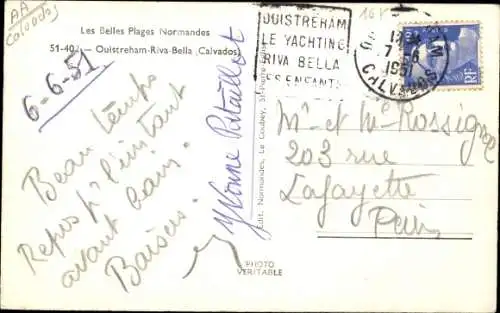 AA
Calvados)
Les Belles Plages Normandes
51-402 — Ouistreham-Riva-Bella (Calvados)
6-6-51
Beau temps
Repos pr l'instant
avant bain.
Baisers.
Yvonne Pataillot
Edit. Normandes, Le Goubey, St-Pierre
PHOTO
VERITABLE
OUISTREHAM
LE YACHTING
RIVA BELLA
SES ENFANTS
7-6
1951
CALVADOS
RF
Mr et Me Rossignol
203 rue
Lafayette
Paris